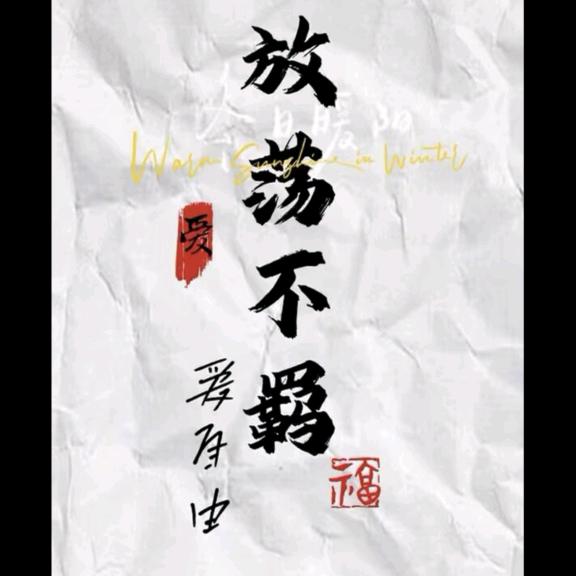 放荡不羁
冬日暖阳
Warm Sunshine in Winter
爱
爱自由
福